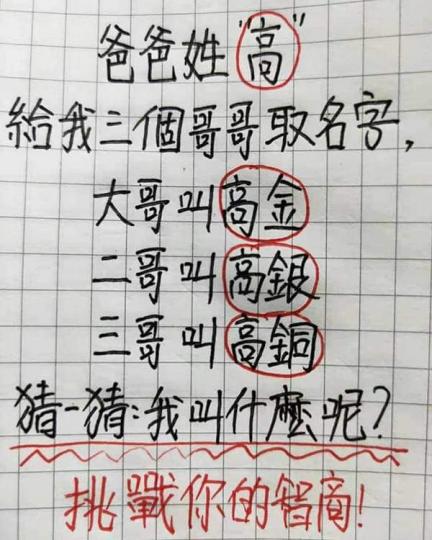 爸爸姓"高"
給我三個哥哥取名字,
大哥叫高金
二哥叫高銀
三哥叫高銅
猜一猜:我叫什麼呢?
挑戰你的智商!